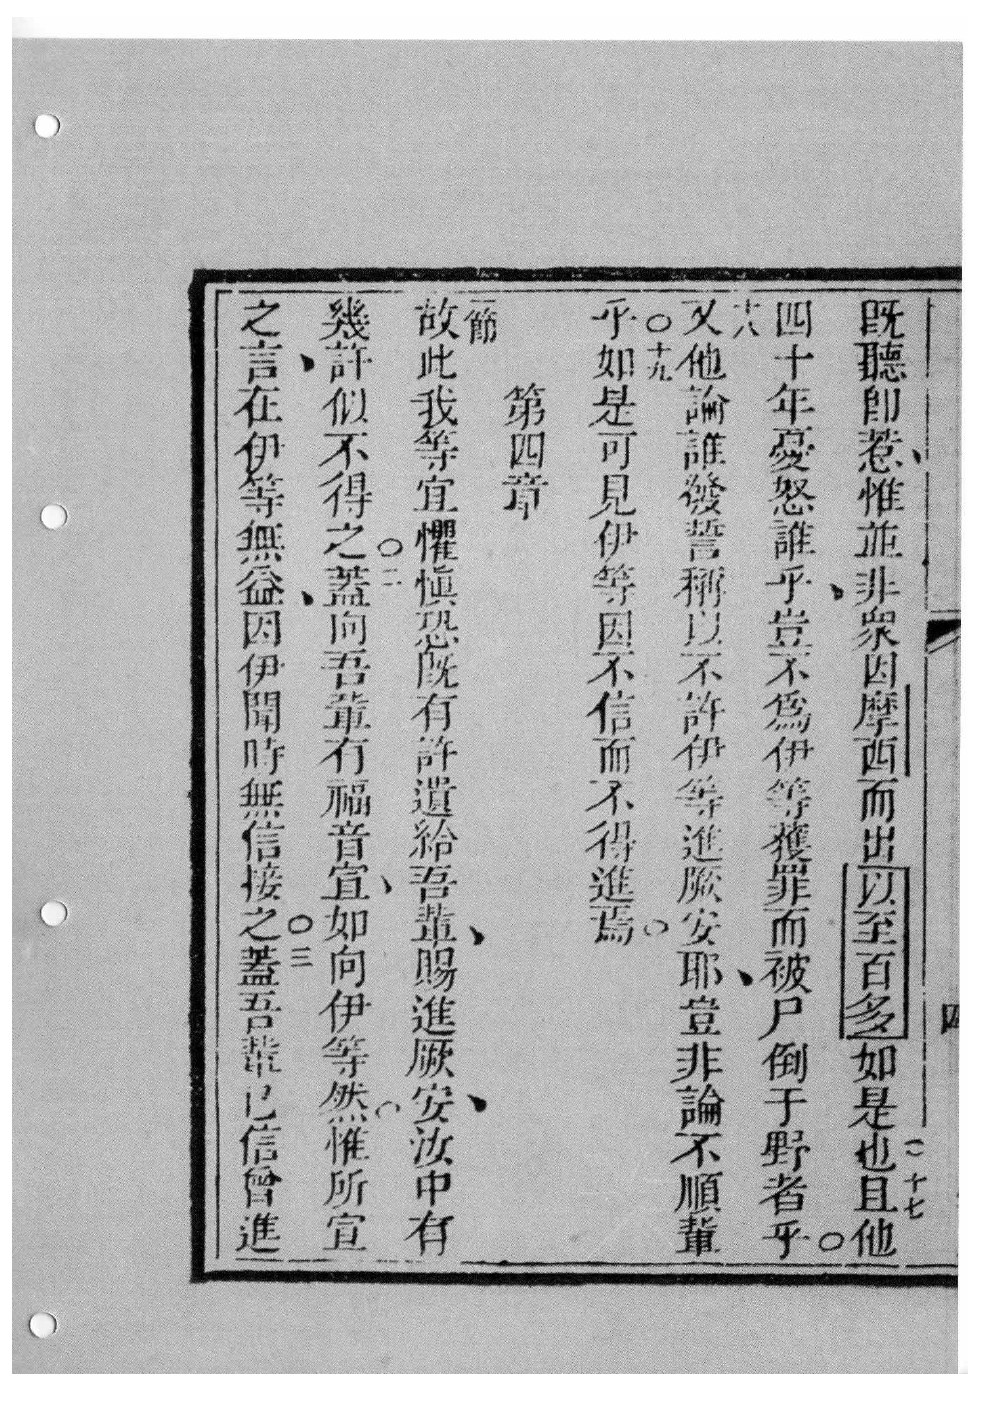 四
既聽卽惹惟並非衆因摩西而出以至百多如是也且他
十七
四十年憂怒誰乎豈不為伊等獲罪而被尸倒于野者乎
十八
又他論誰發誓稱以不許伊等進厥安耶豈非論不順輩
十九
乎如是可見伊等因不信而不得進焉
第四章
一節
故此我等宜懼慎恐既有許遺給吾輩賜進厥安汝中有
幾許似不得之蓋向吾輩有福音宜如向伊等然惟所宣
二
之言在伊等無益因伊聞時無信接之蓋吾輩已信曾進
三